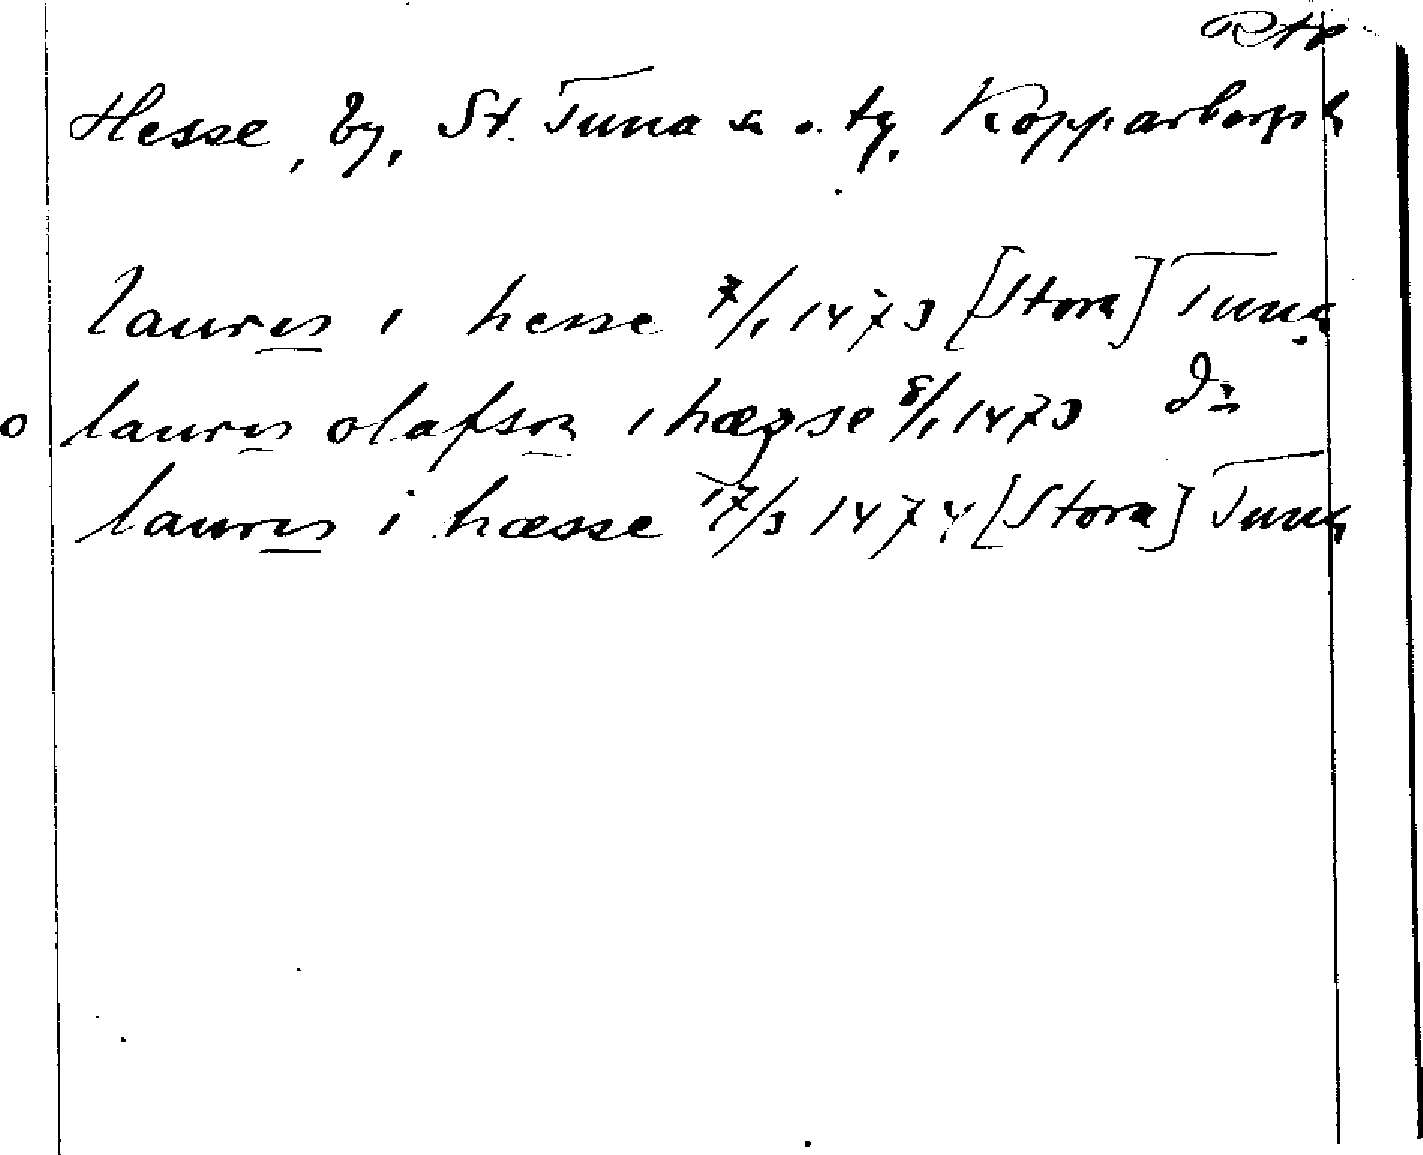 Rtp
Hesse, by, St. Tuna sn o. tg, Kopparbergs l
laurens i hesse 7/1 1473 [Stora] Tuna
o laurens olafson i hægse 8/1 1473 do
laurens i hæsse 17/3 1474 [Stora] Tuna